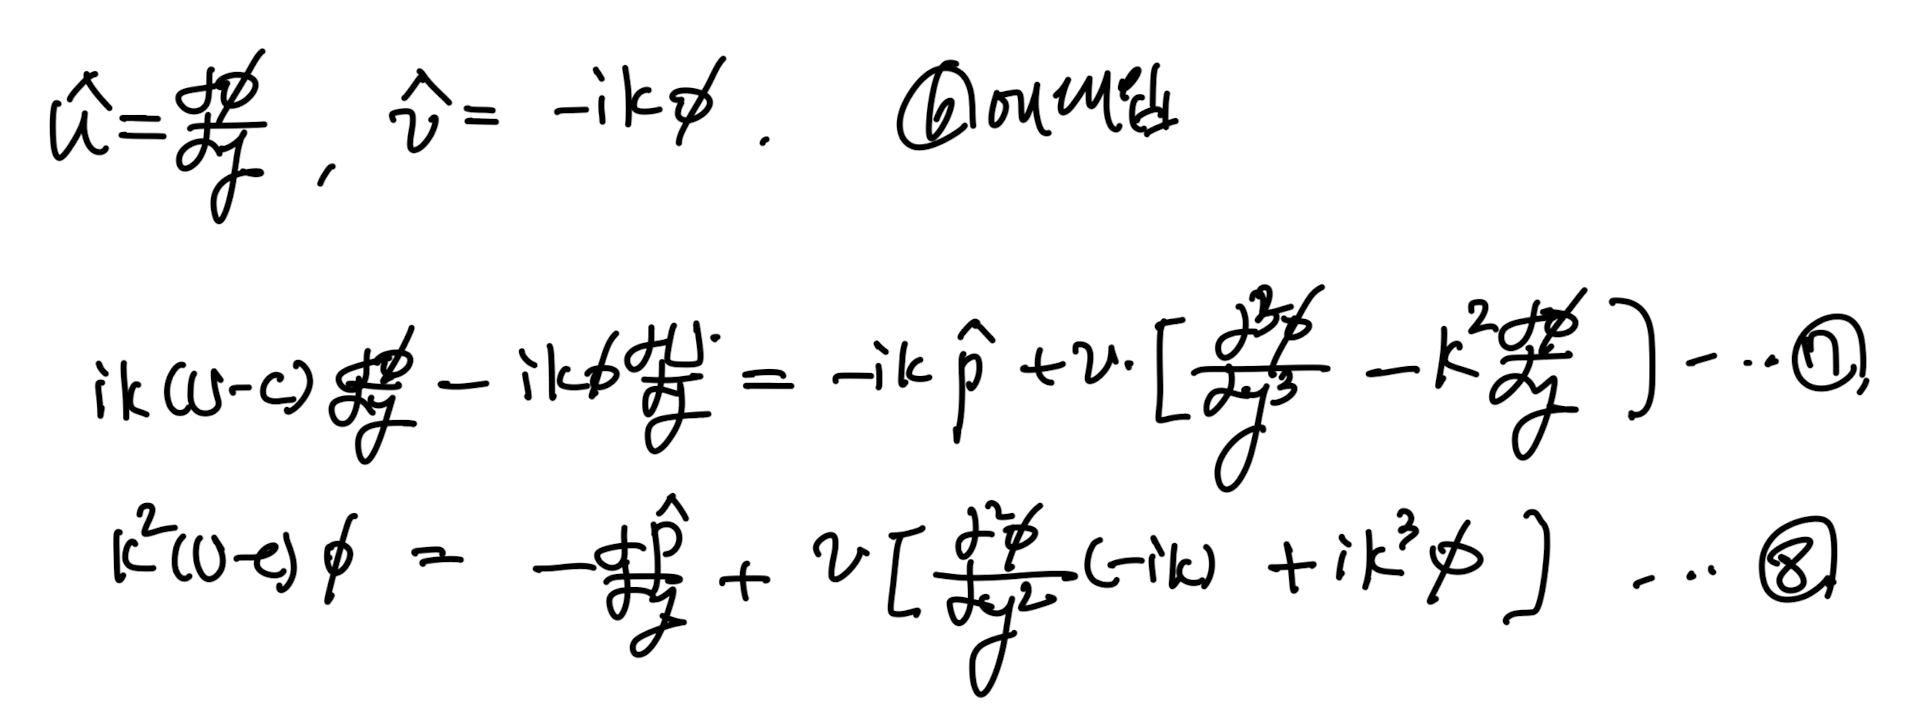 û = dφ/dy , v̂ = -ikφ . ⑥에 대입
ik(U-c) dφ/dy - ikφ dU/dy = -ik p̂ + ν · [ d³φ/dy³ - k² dφ/dy ] - ... ⑦,
k²(U-c) φ = - dp̂/dy + ν [ d²φ/dy² (-ik) + ik³φ ] ... ⑧